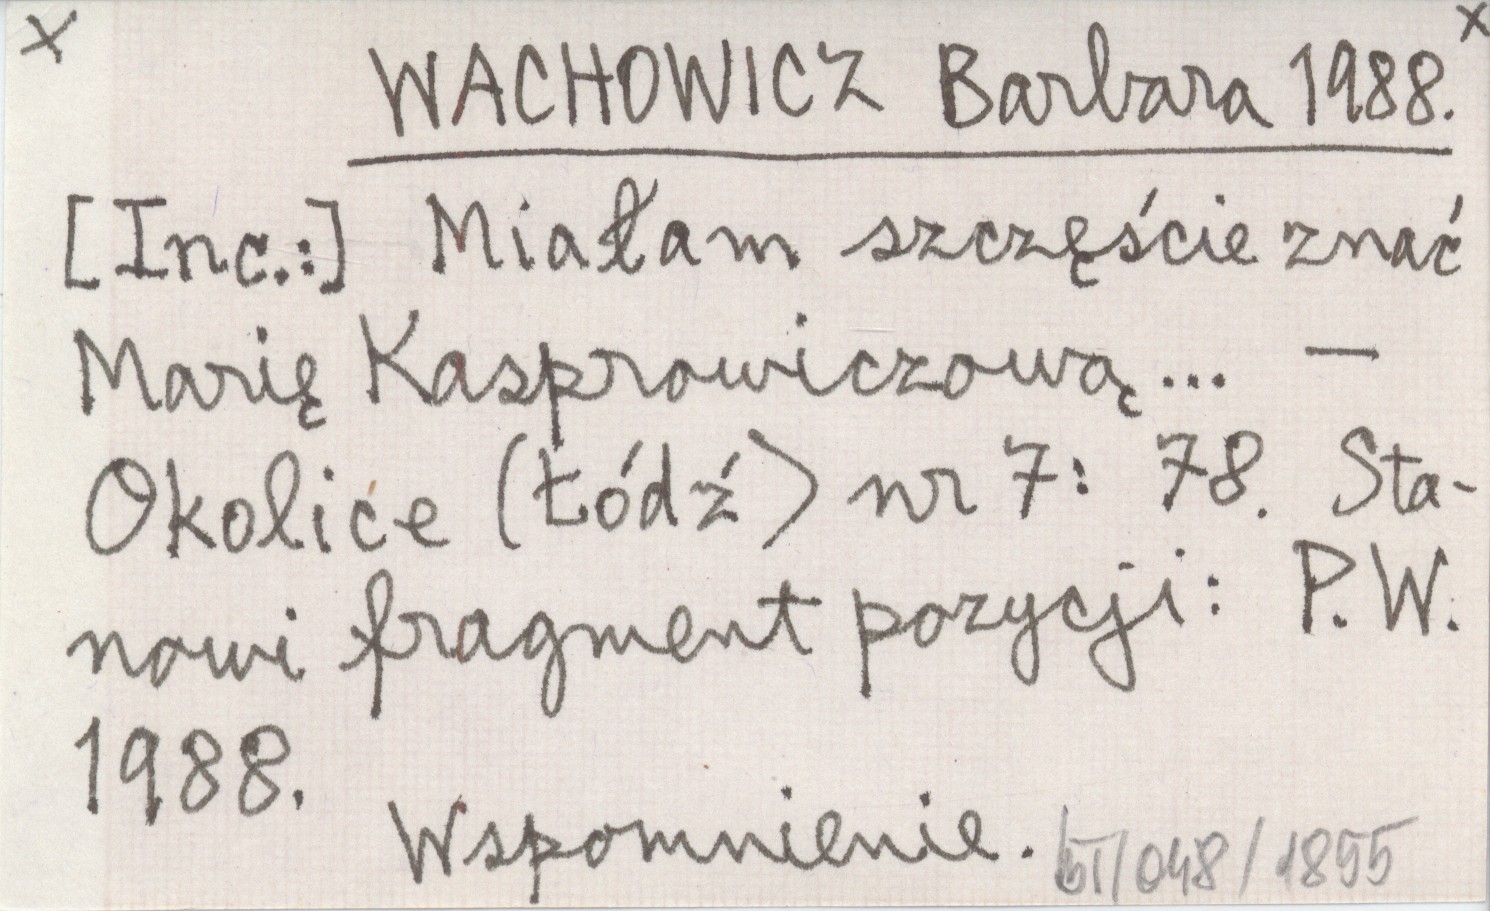 x x
WACHOWICZ Barbara 1988.
[Inc.:] Miałam szczęście znać
Marię Kasprowiczową... —
Okolice (Łódź) nr 7: 78. Sta-
nowi fragment pozycji: P.W.
1988.
Wspomnienie.
/048/1855